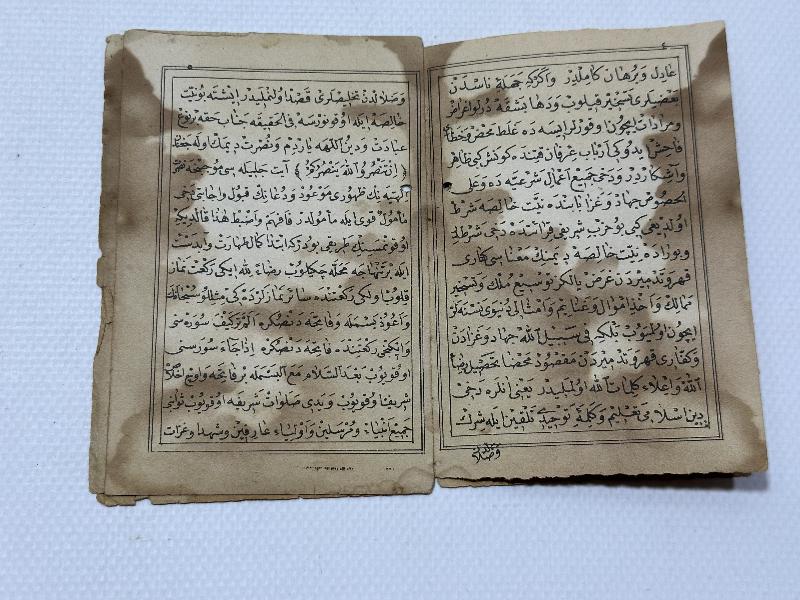 ٤
عادل و برهان كاملدر واكركه جمله ناسدن
بعضيلرى تسخير قيلوب ودها بشقه درلو اغراض
ومرادات ايچون اوقورلر ايسه ده غلط محض وخطأ
فاحش ايدوكى ارباب عرفان قتنده كونش كبى ظاهر
وآشكاردر ودخى جميع اعمال شرعيه ده وعلى
الخصوص جهاد وغزا بابنده نيت خالصه شرط
اولديغى كبى بو حزب شريفى قرائتنده دخى شرطدر
وبوراده نيت خالصه ديمنك معناسى كفارى
قهر وتدميردن غرض يالكز توسيع ملك وتسخير
ممالك واخذ اموال وغنايم وامثالى دنيوى نسنه لر
ايچون اولميوب بلكه فى سبيل الله جهاد وغزادن
وكفارى قهر وتدميردن مقصود محضا تحصيل رضاء
الله واعلاء كلمات الله اولمليدر يعنى انلره دخى
دين اسلامى تعليم وكلمۀ توحيدى تلقين ايله شرك
وضلالدن
٥
وضلالدن تخليصلرى قصد اولنمليدر ايشته بو نيت
خالصه ايله اوقونورسه فى الحقيقه جناب حقه
عبادت ودين اللهه ياردم ونصرت ديمك اوله جغندن
﴿ ان تنصروا الله ينصركم ﴾ آيت جليله سى موجبنجه نصرت
الهيه نك ظهورى موعود ودعانك قبول واجابتى دخى
مأمول قوى ايله مأمولدر فافهم واضبط هذا
اوقونمسنك طريقى بودركه ابتدا كمال طهارت وآبدست
ايله بر تنها جه محله چكيلوب رضاء لله ايكى ركعت نماز
قلوب واولكى ركعتنده سائر نمازلرده كى مثللو سبحانك
واعوذ بسمله وفاتحه دنصكره الم تركيف سوره سنى
وايكنجى ركعتنده فاتحه دنصكره اذا جاء سوره سنى
اوقويوب بعد السلام مع البسمله بر فاتحه واوچ اخلاص
شريف اوقويوب ويدى صلوات شريفه اوقويوب ثوابنى
جميع انبياء ومرسلين واولياء عارفين وشهدا وغزات